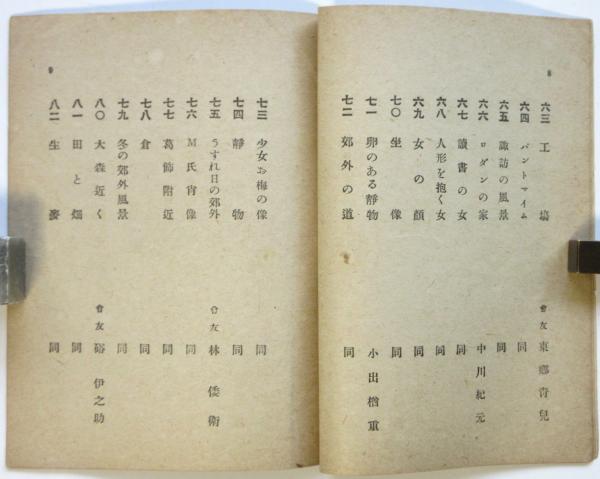 8
六三 工場 會友 東郷青兒
六四 パントマイム 同
六五 諏訪の風景 同
六六 ロダンの家 中川紀元
六七 讀書の女 同
六八 人形を抱く女 同
六九 女の顔 同
七〇 坐像 同
七一 卵のある靜物 小出楢重
七二 郊外の道 同
9
七三 少女お梅の像 同
七四 靜物 同
七五 うすれ日の郊外 會友 林倭衛
七六 M氏肖像 同
七七 葛飾附近 同
七八 倉 同
七九 冬の郊外風景 同
八〇 大森近く 會友 硲伊之助
八一 田と畑 同
八二 生麥 同